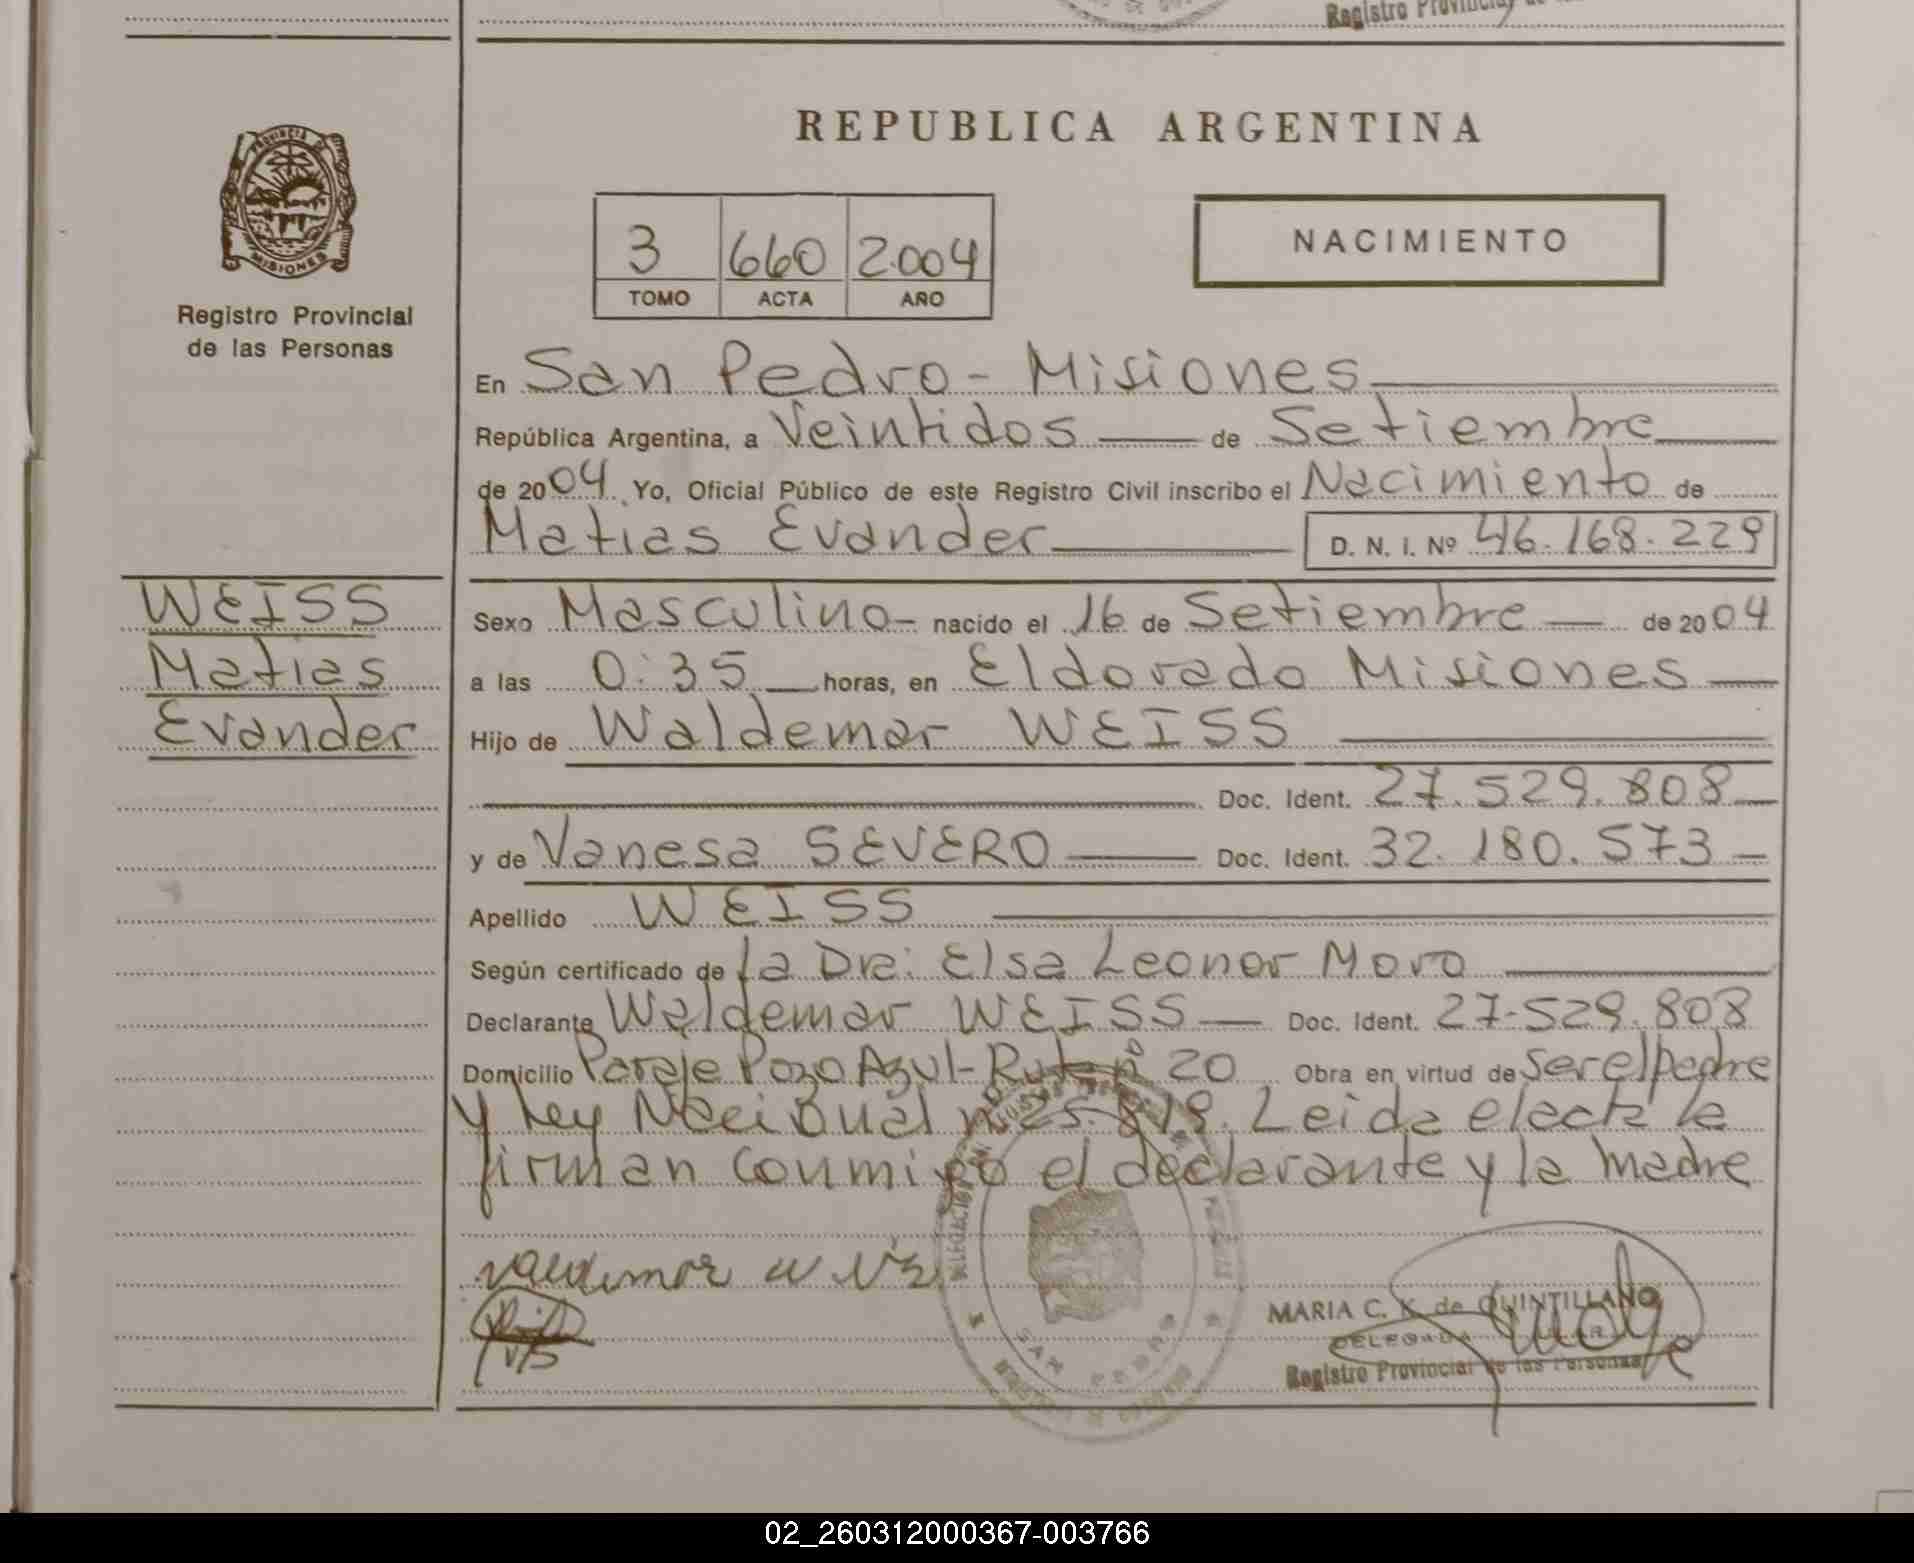 Registro Provincial de
REPUBLICA ARGENTINA
PROVINCIA DE
MISIONES
Registro Provincial
de las Personas
3 660 2.004
TOMO ACTA AÑO
NACIMIENTO
En San Pedro - Misiones
República Argentina, a Veintidos de Setiembre
de 2004. Yo, Oficial Público de este Registro Civil inscribo el Nacimiento de
Matias Evander D. N. I. Nº 46.168.229
WEISS
Matias
Evander
Sexo Masculino - nacido el 16 de Setiembre de 2004
a las 0:35 horas, en Eldorado Misiones
Hijo de Waldemar WEISS
Doc. Ident. 27.529.808
y de Vanesa SEVERO Doc. Ident. 32.180.573
Apellido WEISS
Según certificado de la Dra: Elsa Leonor Moro
Declarante Waldemar WEISS Doc. Ident. 27.529.808
Domicilio Paraje Pozo Azul - Ruta nº 20 Obra en virtud de ser el padre
y Ley Nacional nº 25.819. Leida el acta la
firman conmigo el declarante y la madre
SAN PEDRO
MARIA C. K. de QUINTILLANO
DELEGADA TITULAR
Registro Provincial de las Personas
02_260312000367-003766